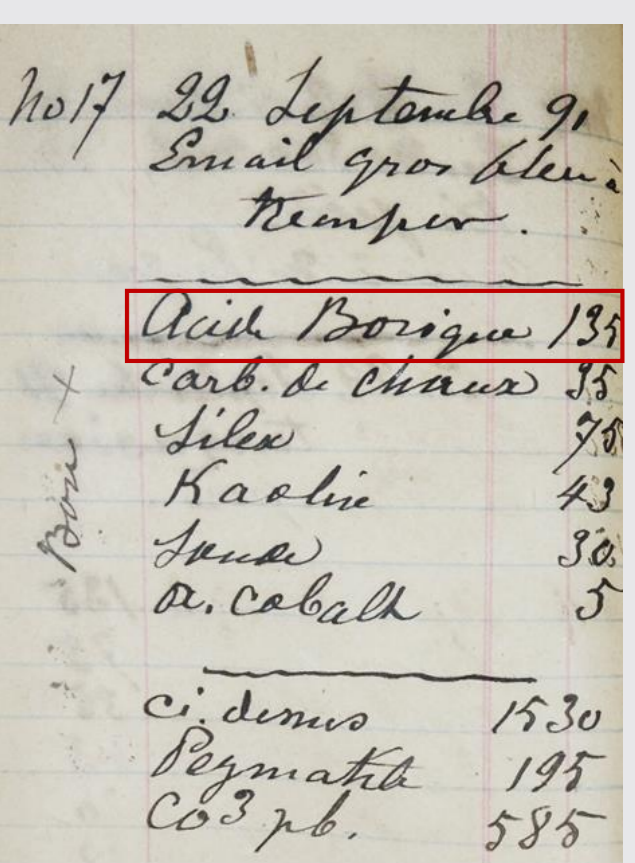 No 17 22 Septembre 91
Email gros bleu à
Kemper.
Acide Borique 135
Carb. de chaux 35
Silex 75
Kaolin 43
Soude 30
ox. cobalt 5
Bon x
ci. dessus 1530
Pegmatite 195
CO3 pb. 585